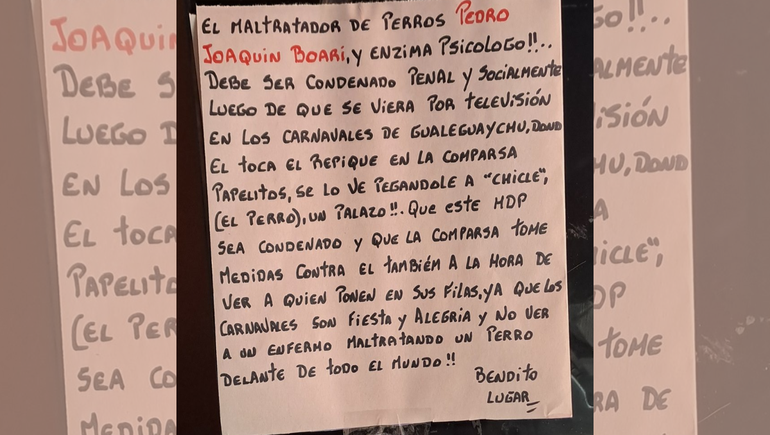 EL MALTRATADOR DE PERROS PEDRO
JOAQUIN BOARI, Y ENZIMA PSICOLOGO!!..
DEBE SER CONDENADO PENAL Y SOCIALMENTE
LUEGO DE QUE SE VIERA POR TELEVISIÓN
EN LOS CARNAVALES DE GUALEGUAYCHU, DOND
EL TOCA EL REPIQUE EN LA COMPARSA
PAPELITOS, SE LO VE PEGANDOLE A "CHICLE",
(EL PERRO), UN PALAZO!!. QUE ESTE MDP
SEA CONDENADO Y QUE LA COMPARSA TOME
MEDIDAS CONTRA EL TAMBIÉN A LA HORA DE
VER A QUIEN PONEN EN SUS FILAS, YA QUE LOS
CARNAVALES SON FIESTA Y ALEGRIA Y NO VER
A UN ENFERMO MALTRATANDO UN PERRO
DELANTE DE TODO EL MUNDO!!
BENDITO
LUGAR